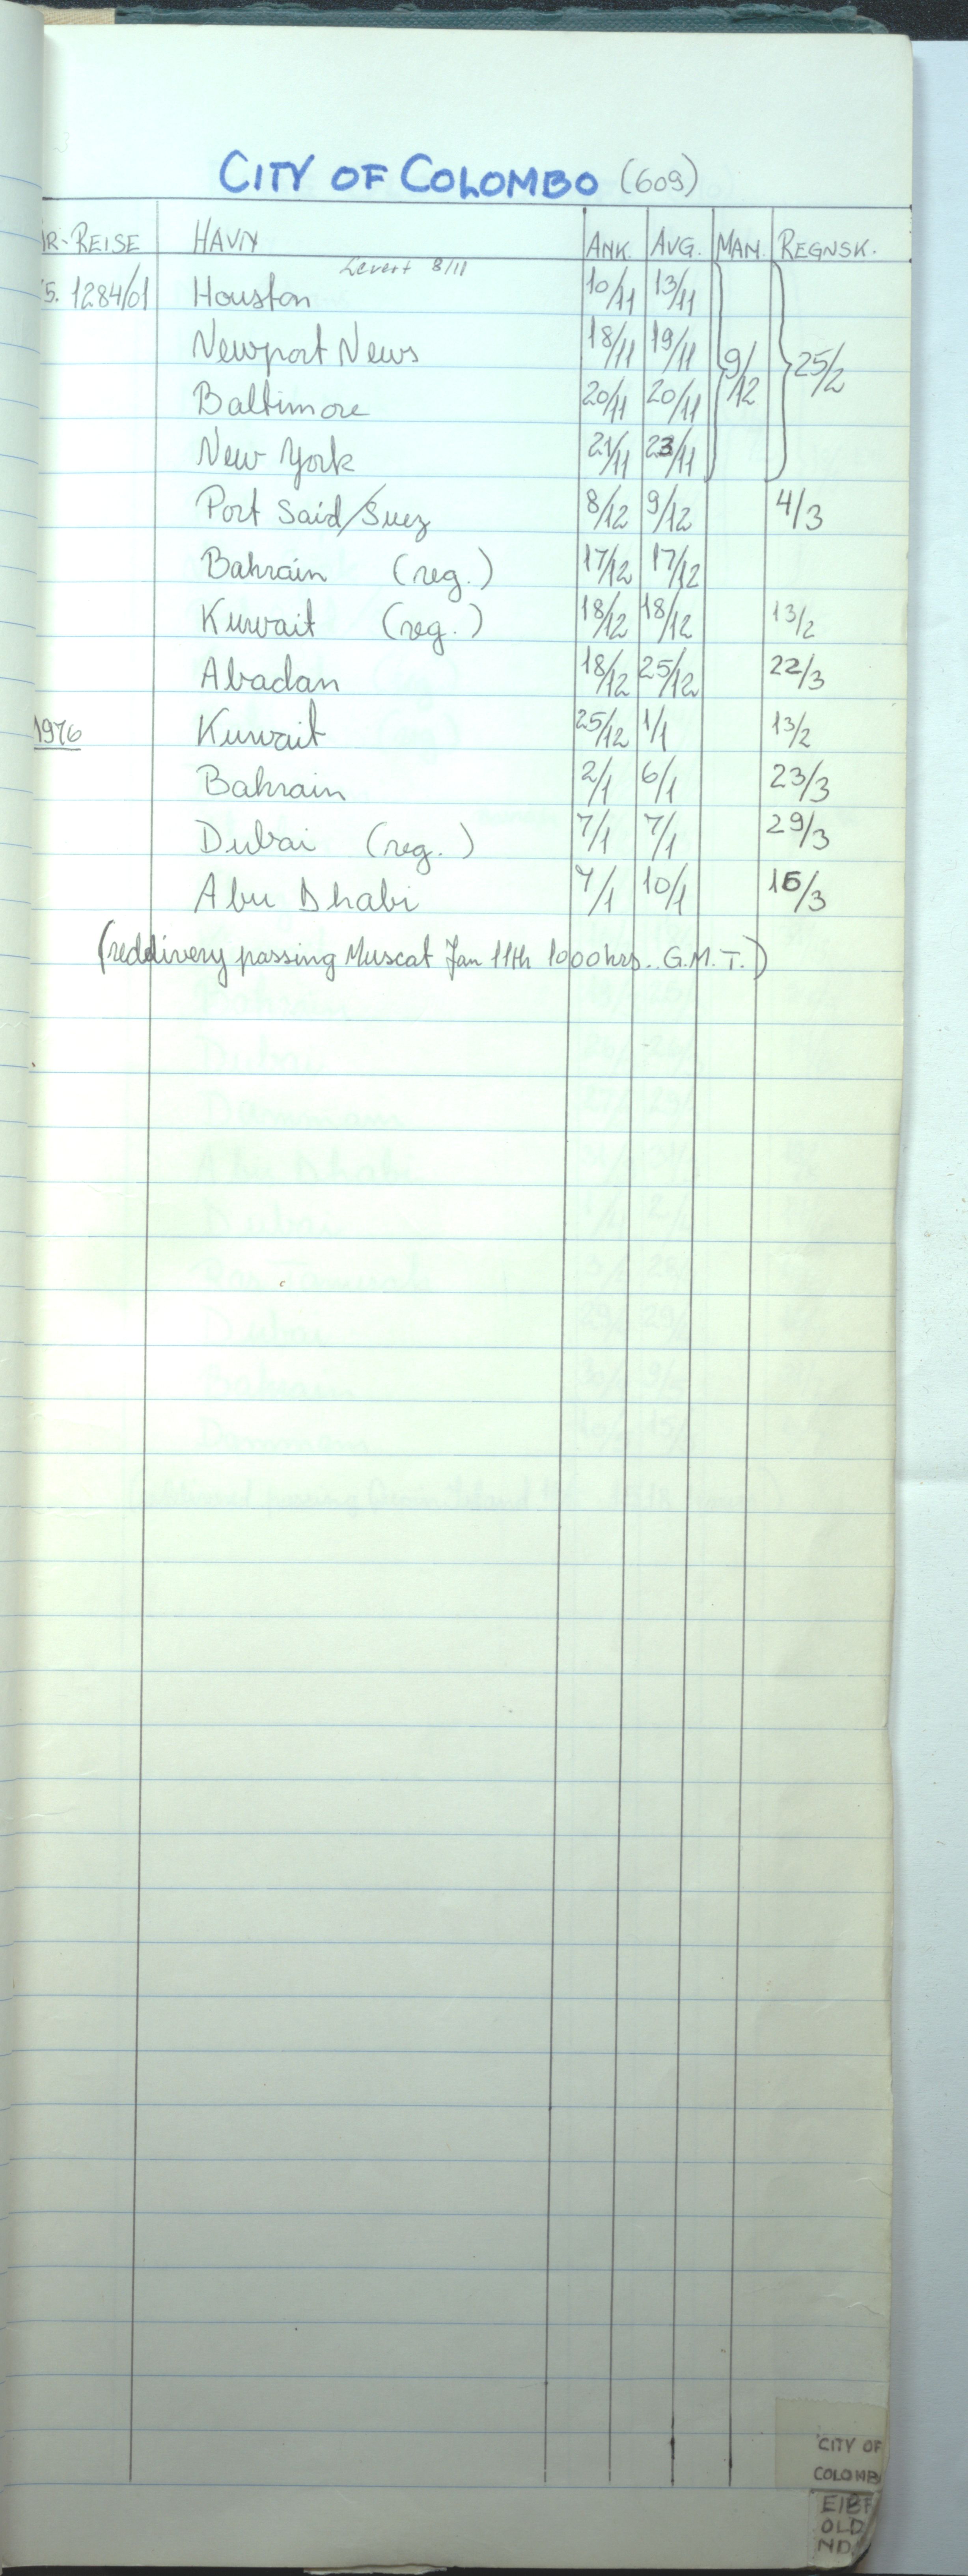 CITY OF COLOMBO (609)
ÅR-REISE HAVN ANK. AVG. MAN. REGNSK.
Levert 8/11
5. 1284/01 Houston 10/11 13/11
Newport News 18/11 19/11 9/12 25/2
Baltimore 20/11 20/11
New York 21/11 23/11
Port Said/Suez 8/12 9/12 4/3
Bahrain (reg.) 17/12 17/12
Kuwait (reg.) 18/12 18/12 13/2
Abadan 18/12 25/12 22/3
1976 Kuwait 25/12 1/1 13/2
Bahrain 2/1 6/1 23/3
Dubai (reg.) 7/1 7/1 29/3
Abu Dhabi 7/1 10/1 15/3
(reddivery passing Muscat Jan 11th 1000 hrs. G.M.T.)
CITY OF
COLOMB
EIBF
OLD
ND.